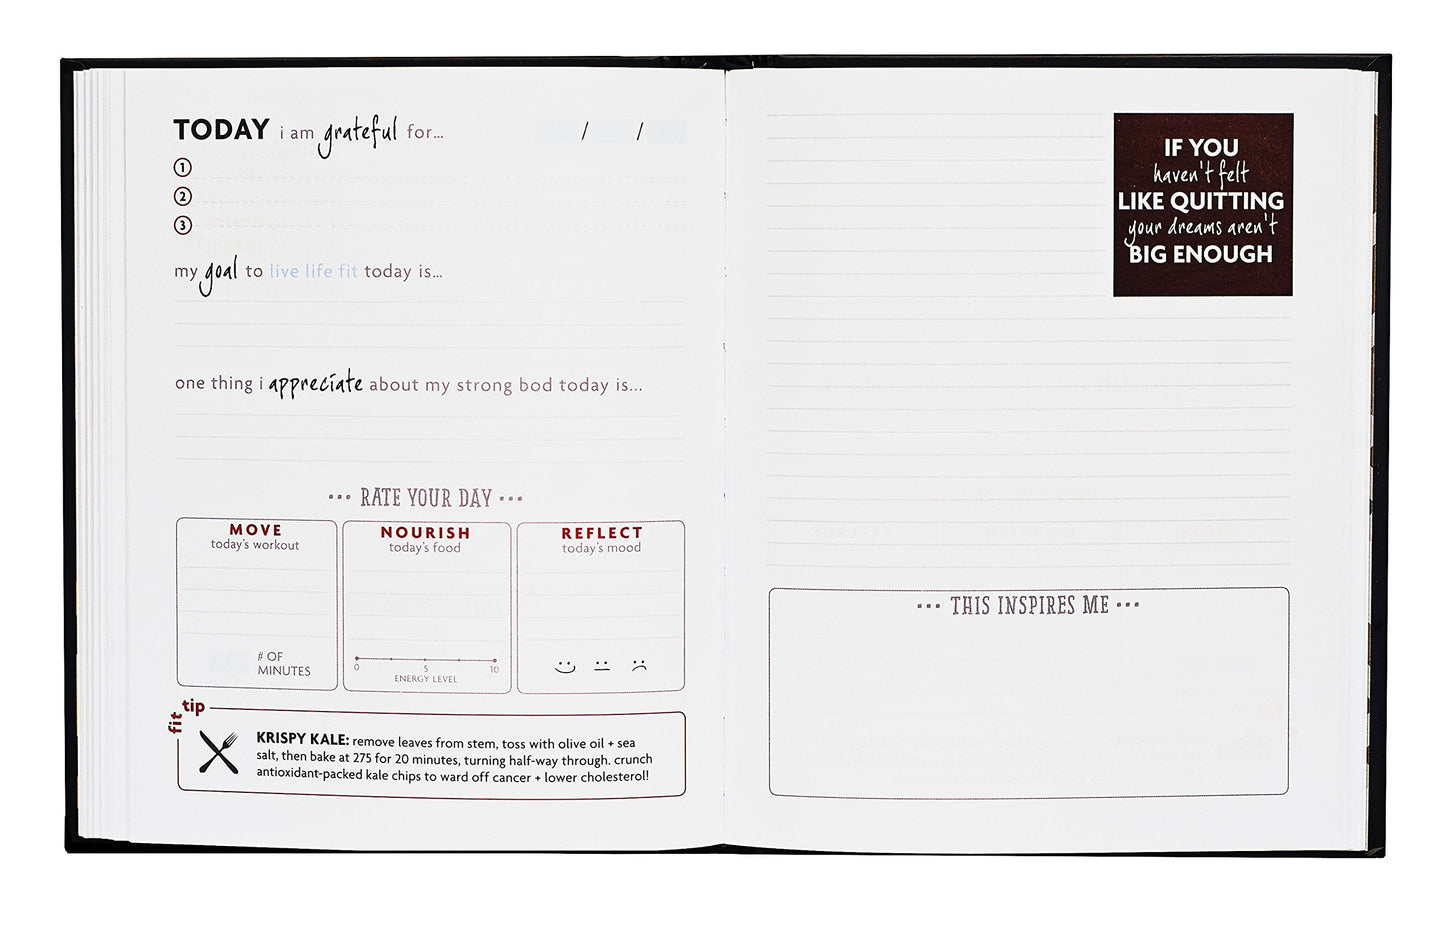 TODAY i am grateful for...
/ /
1
2
3
my goal to live life fit today is...
one thing i appreciate about my strong bod today is...
••• RATE YOUR DAY •••
MOVE
today's workout
# OF
MINUTES
NOURISH
today's food
0 5 10
ENERGY LEVEL
REFLECT
today's mood
fit tip
KRISPY KALE: remove leaves from stem, toss with olive oil + sea
salt, then bake at 275 for 20 minutes, turning half-way through. crunch
antioxidant-packed kale chips to ward off cancer + lower cholesterol!
IF YOU
haven't felt
LIKE QUITTING
your dreams aren't
BIG ENOUGH
••• THIS INSPIRES ME •••